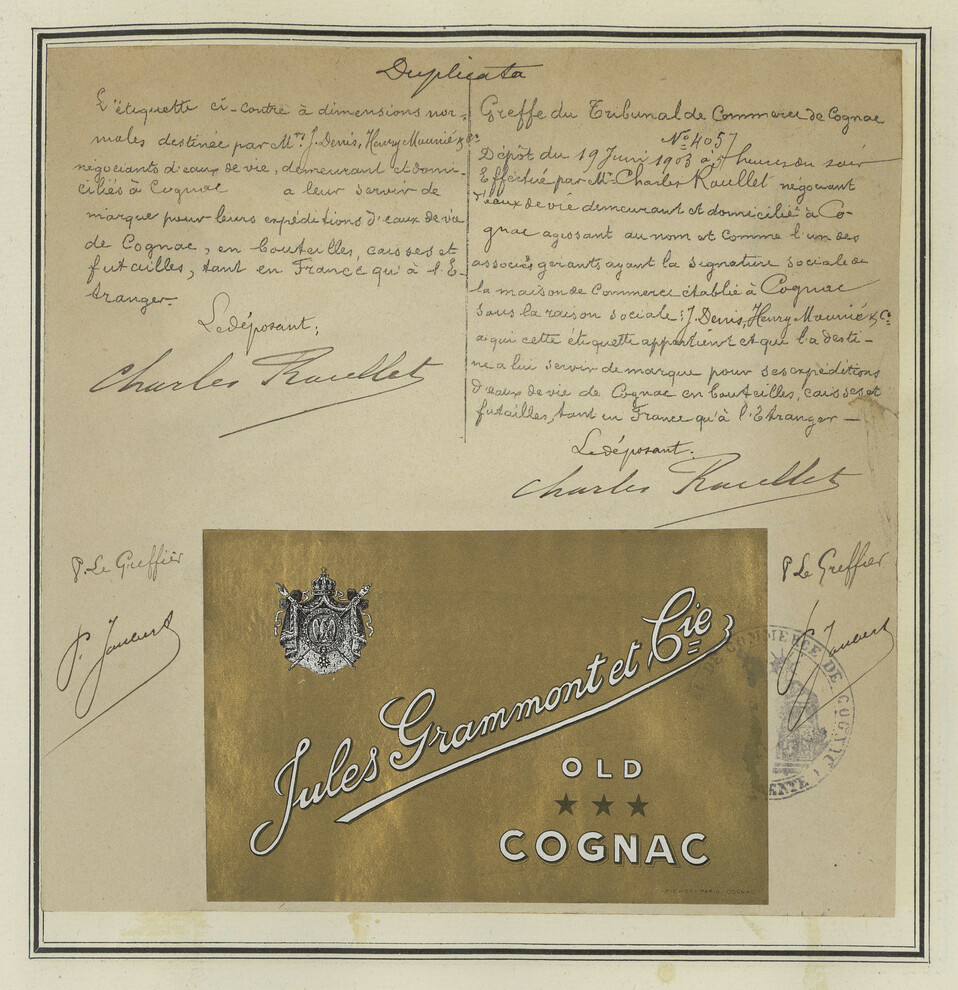 Duplicata
L'étiquette ci-contre à dimensions nor-
males destinée par Mrs J. Denis, Henry Mounié & Co
négociants d'eaux de vie, demeurant et domi-
ciliés à Cognac a leur servir de
marque pour leurs expéditions d'eaux de vie
de Cognac, en bouteilles, caisses et
futailles, tant en France qu'à l'E-
tranger.
Le déposant;
Charles Roullet
Greffe du Tribunal de Commerce de Cognac
No 4057
Dépôt du 19 Juin 1903 à 5 heures du soir
Effectué par Mr Charles Roullet négociant
d'eaux de vie demeurant et domicilié à Co-
gnac agissant au nom et comme l'un des
associés gérants ayant la signature sociale de
la maison de Commerce établie à Cognac
sous la raison sociale: J. Denis, Henry Mounié & Co
a qui cette étiquette appartient et qui l'a desti-
ne a lui servir de marque pour ses expéditions
d'eaux de vie de Cognac en bouteilles, caisses et
futailles, tant en France qu'à l'Etranger —
Le déposant.
Charles Roullet
P. Le Greffier
P Le Greffier
Jules Grammont et Cie
OLD
★ ★ ★
COGNAC
DE COMMERCE DE